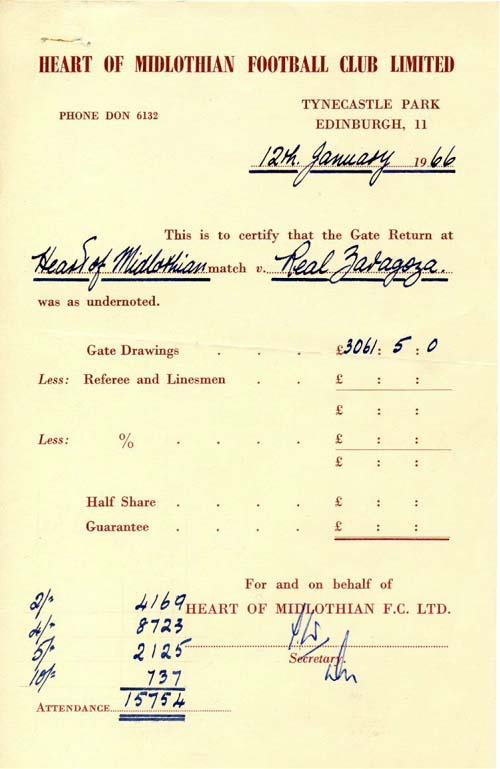 HEART OF MIDLOTHIAN FOOTBALL CLUB LIMITED
PHONE DON 6132
TYNECASTLE PARK
EDINBURGH, 11
12th. January 1966
This is to certify that the Gate Return at
Heart of Midlothian match v. Real Zaragoza.
was as undernoted.
Gate Drawings . . . £3061 : 5 : 0
Less: Referee and Linesmen . . £ : :
£ : :
Less: % . . . . £ : :
£ : :
Half Share . . . . £ : :
Guarantee . . . . £ : :
For and on behalf of
HEART OF MIDLOTHIAN F.C. LTD.
Secretary.
2/- 4169
4/- 8723
5/- 2125
10/- 737
ATTENDANCE 15754